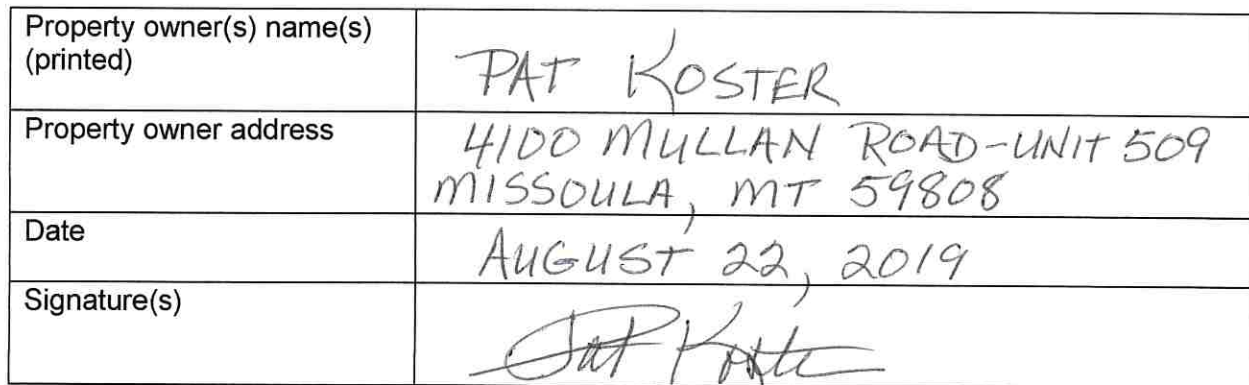 Property owner(s) name(s)
(printed)
PAT KOSTER
Property owner address
4100 MULLAN ROAD-UNIT 509
MISSOULA, MT 59808
Date
AUGUST 22, 2019
Signature(s)
Pat Koster